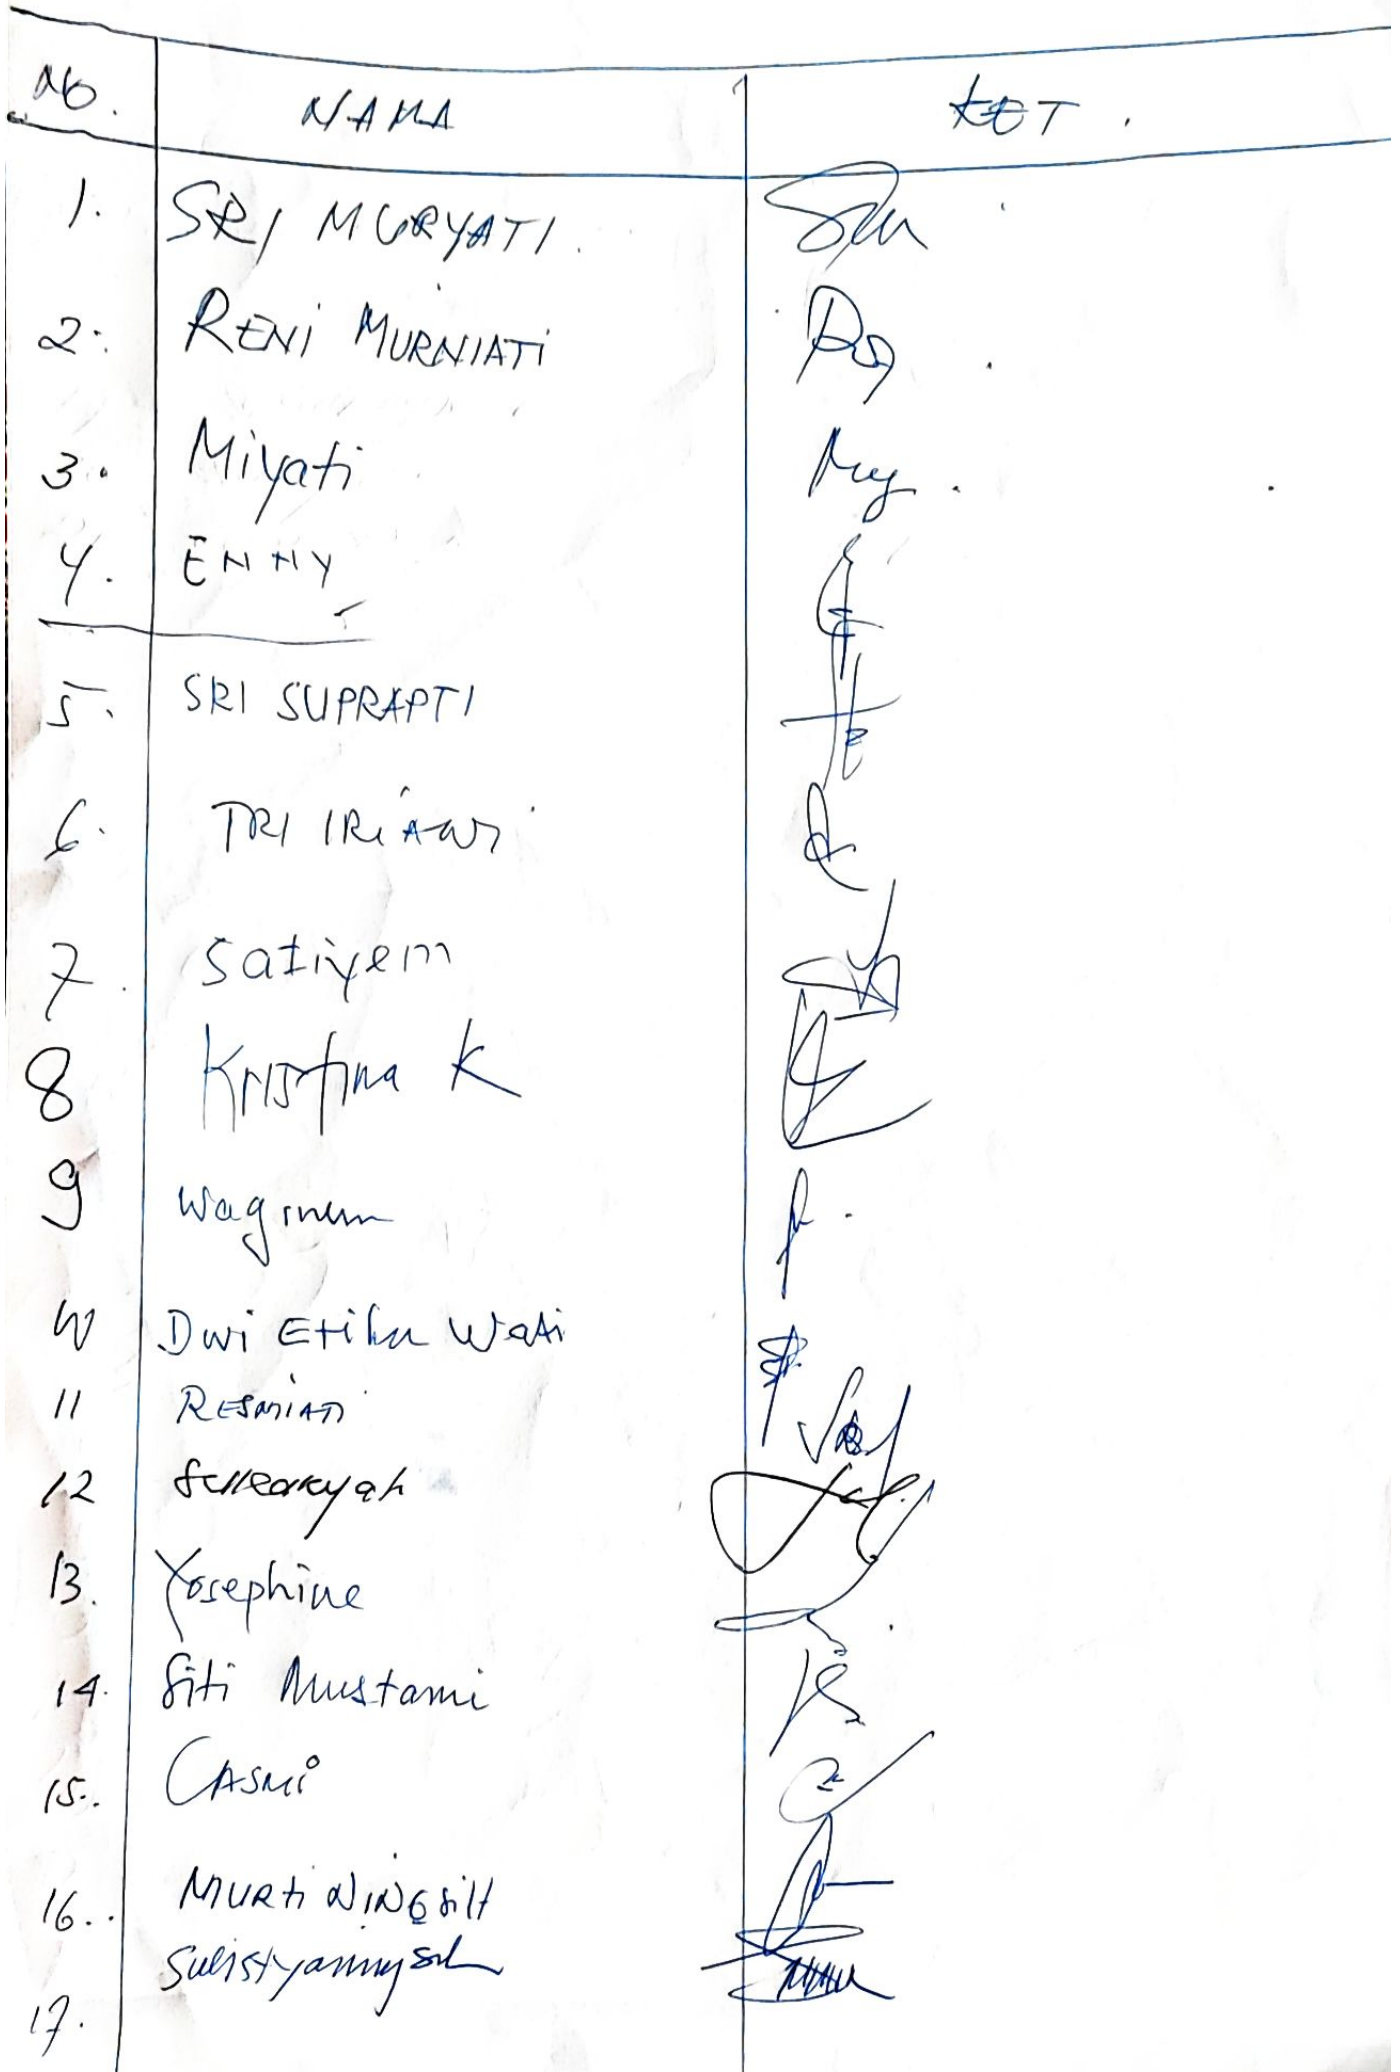 NO. NAMA KET.
1. SRI MURYATI.
2. RENI MURNIATI
3. Miyati
4. ENNY
5. SRI SUPRAPTI
6. TRI IRIAWI
7. Satiyem
8 Kristina K
9 Waginem
10 Dwi Etika Wati
11 RESMIATI
12
13. Yosephine
14. Siti Mustami
15. CASMI
16. MURTI NINGSIH
17. Sulistyaningsih